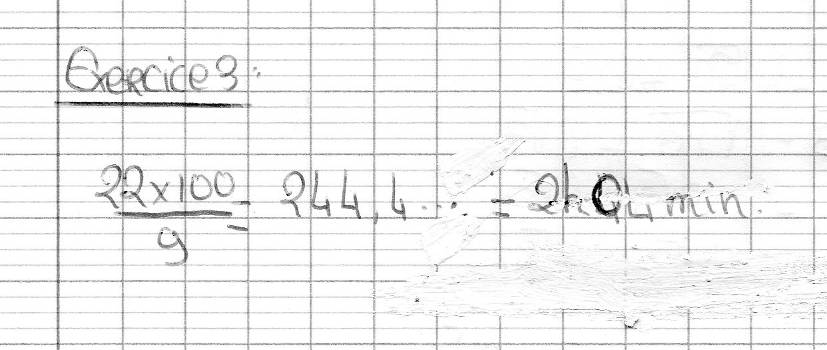 Exercice 3:
22×100/9 = 244,4... = 2h 04 min.